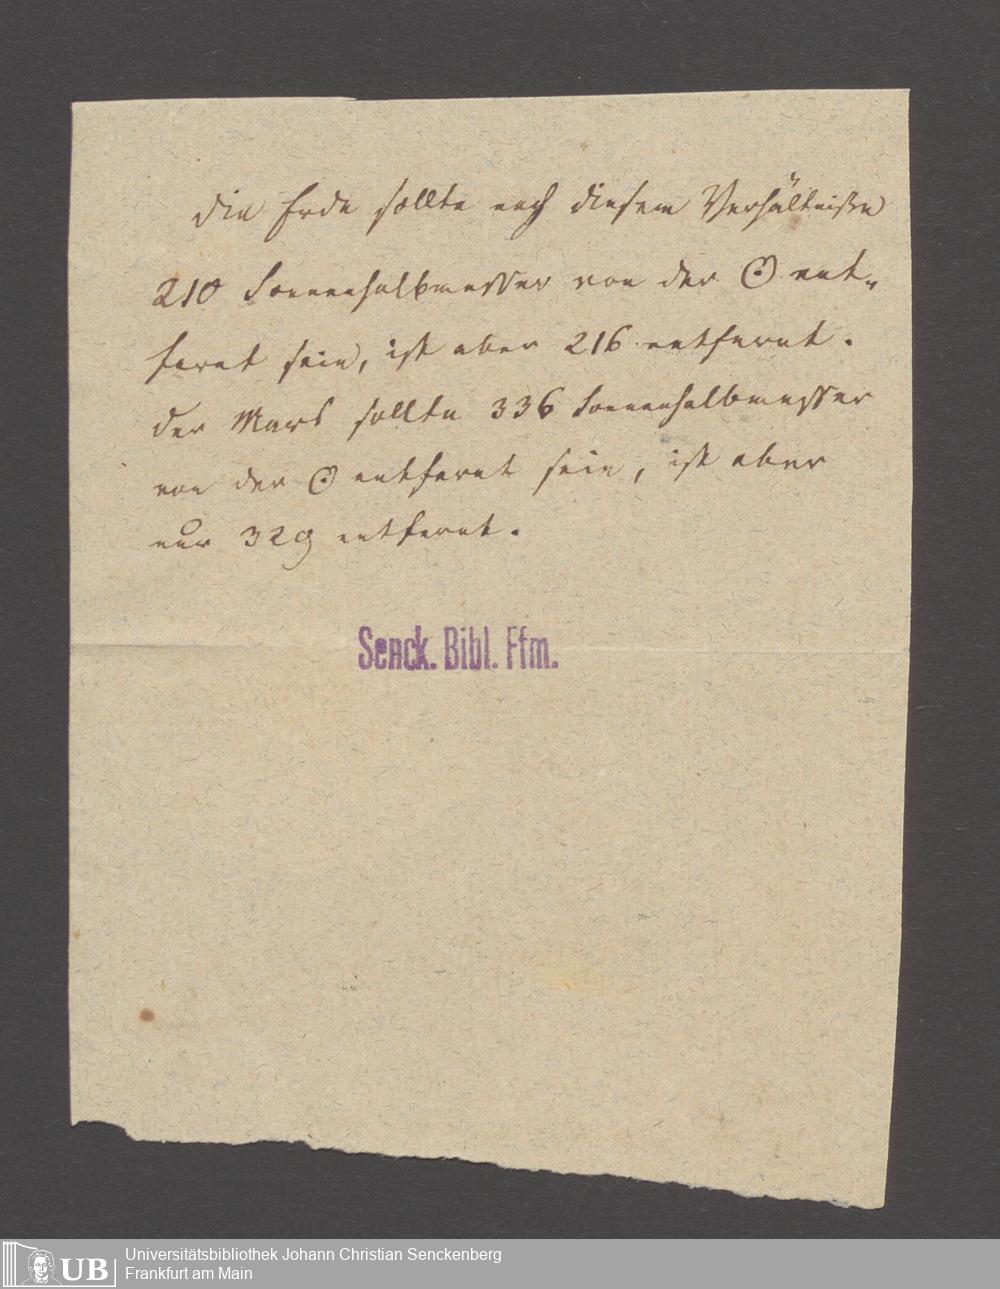 Die Erde sollte nach diesem Verhältnisse
210 Sonnenhalbmesser von der ☉ ent-
fernt sein, ist aber 216 entfernt.
der Mars sollte 336 Sonnenhalbmesser
von der ☉ entfernt sein, ist aber
nur 329 entfernt.
Senck. Bibl. Ffm.
UB
Universitätsbibliothek Johann Christian Senckenberg
Frankfurt am Main